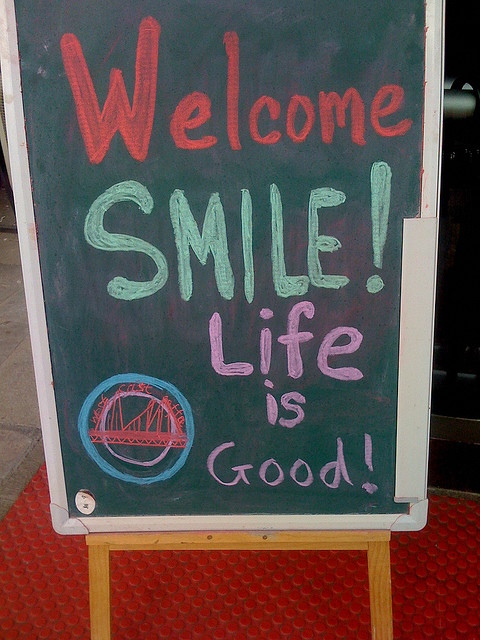 Welcome
SMILE!
Life
is
Good!